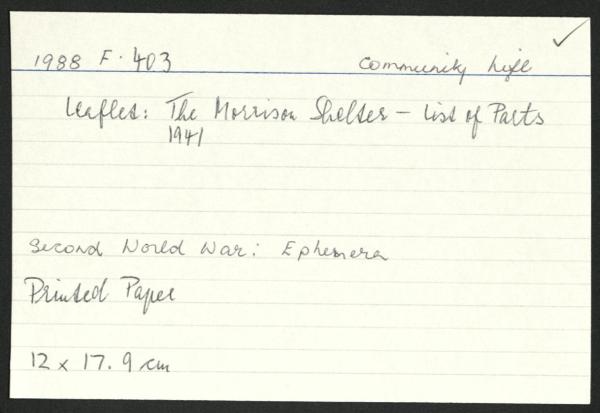 1988 F. 403 Community Life
Leaflet: The Morrison Shelter - List of Parts
1941
Second World War: Ephemera
Printed Paper
12 x 17.9 cm